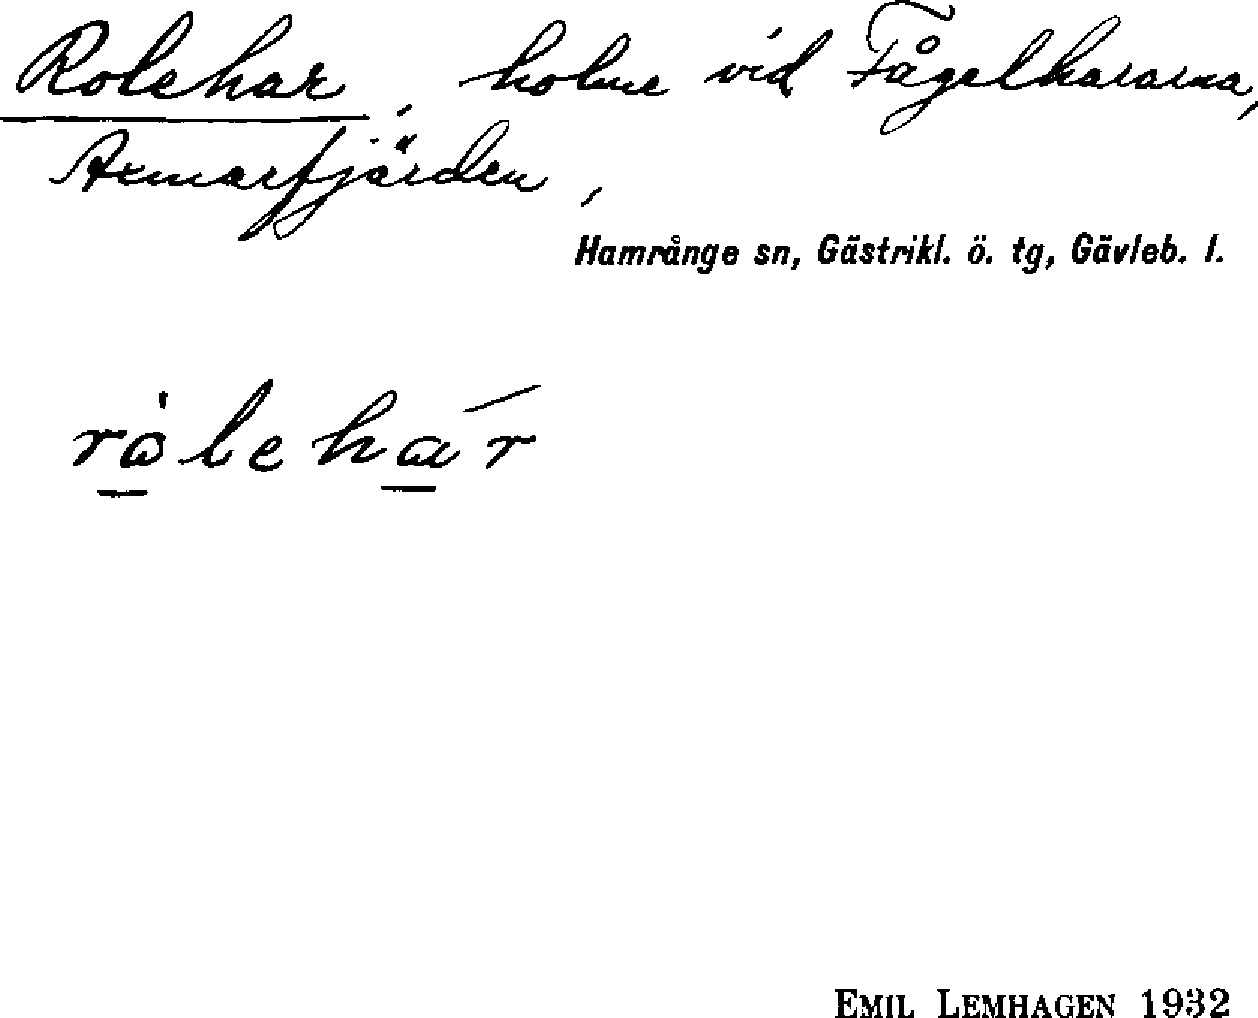 Rolehar, holme vid Fågelhararna,
Axmarfjärden,
Hamrånge sn, Gästrikl. ö. tg, Gävleb. l.
EMIL LEMHAGEN 1932